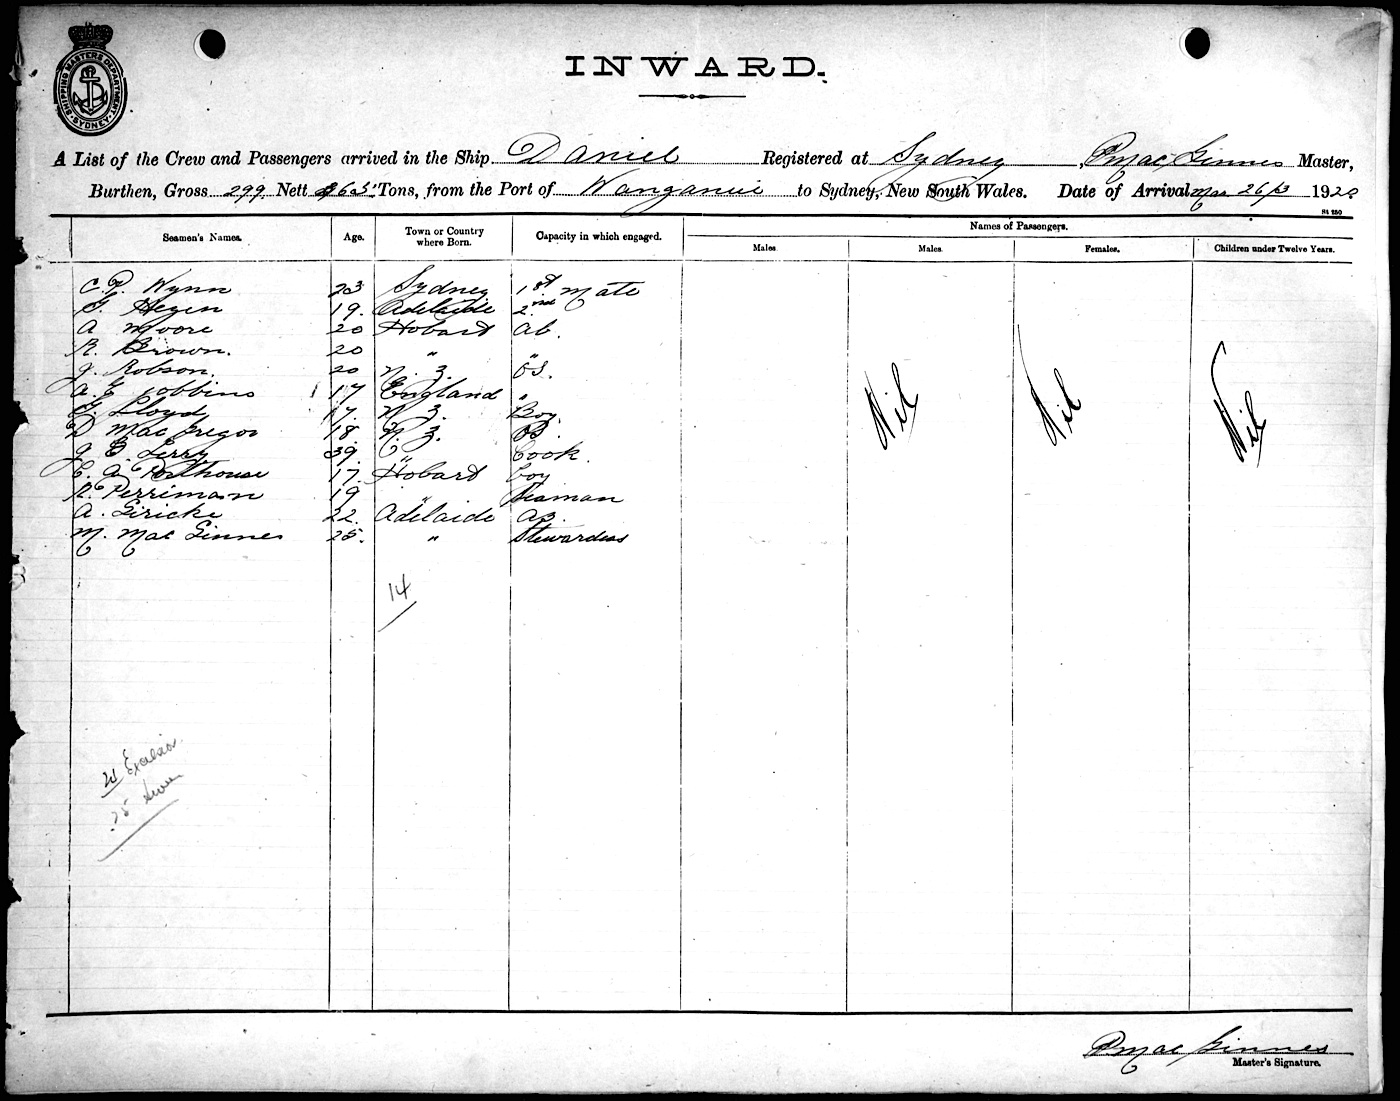 SHIPPING MASTERS DEPARTMENT SYDNEY
INWARD.
A List of the Crew and Passengers arrived in the Ship Daniel Registered at Sydney, P Mac Ginnes Master,
Burthen, Gross 299 Nett 265 Tons, from the Port of Wanganui to Sydney, New South Wales. Date of Arrival Mar 26/3 1920
St 250
Seamen's Names. Age. Town or Country where Born. Capacity in which engaged. Names of Passengers.
Males. Males. Females. Children under Twelve Years.
C. P. Wynn 23 Sydney 1st Mate
Heyen 19. Adelaide 2nd
A Moore 20 Hobart ab.
R. Brown. 20 " "
J. Robson. 20 N. Z. OS.
A. E Robbins 17 England "
Lloyd 17. N Z. Boy
D MacGregor 18. N. Z.
J. E. Terry 39. " Cook.
C. A. Porthouse 17. Hobart boy
R. Perrimann 19 " Seaman
A. Giricke 22. Adelaide AB.
M. Mac Ginnes 25. " Stewardess
Nil Nil Nil
14
Excelsior
P Mac Ginnes
Master's Signature.